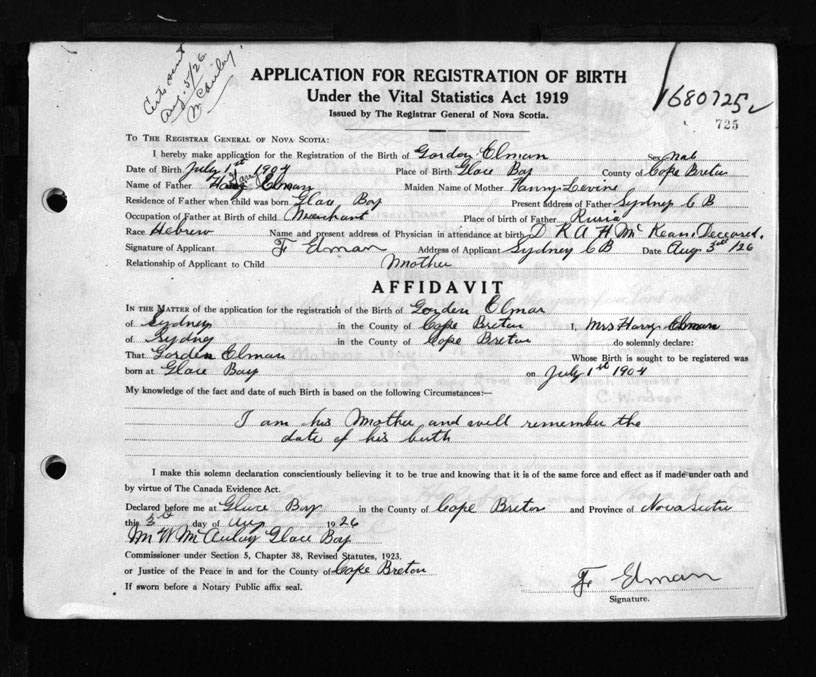 Aug. 5/26
APPLICATION FOR REGISTRATION OF BIRTH
Under the Vital Statistics Act 1919
Issued by The Registrar General of Nova Scotia.
1680725
725
TO THE REGISTRAR GENERAL OF NOVA SCOTIA:
I hereby make application for the Registration of the Birth of Gordon Elman Sex Mal
Date of Birth July 1st 1904 Place of Birth Glace Bay County of Cape Breton
Name of Father Harry Elman Maiden Name of Mother Fanny Levine
Residence of Father when child was born Glace Bay Present address of Father Sydney C B
Occupation of Father at Birth of child Merchant Place of birth of Father Russia
Race Hebrew Name and present address of Physician in attendance at birth D R A H McKean. Deceased.
Signature of Applicant F Elman Address of Applicant Sydney C B Date Aug 3rd/26
Relationship of Applicant to Child Mother
AFFIDAVIT
IN THE MATTER of the application for the registration of the Birth of Gorden Elman
of Sydney in the County of Cape Breton I, Mrs Harry Elman
of Sydney in the County of Cape Breton do solemnly declare:
That Gorden Elman Whose Birth is sought to be registered was
born at Glace Bay on July 1st 1904
My knowledge of the fact and date of such Birth is based on the following Circumstances:—
I am his Mother and well remember the
date of his birth
I make this solemn declaration conscientiously believing it to be true and knowing that it is of the same force and effect as if made under oath and
by virtue of The Canada Evidence Act.
Declared before me at Glace Bay in the County of Cape Breton and Province of Nova Scotia
this 3rd day of Aug 1926
M W McAulay Glace Bay
Commissioner under Section 5, Chapter 38, Revised Statutes, 1923.
or Justice of the Peace in and for the County of Cape Breton
If sworn before a Notary Public affix seal.
F Elman
Signature.